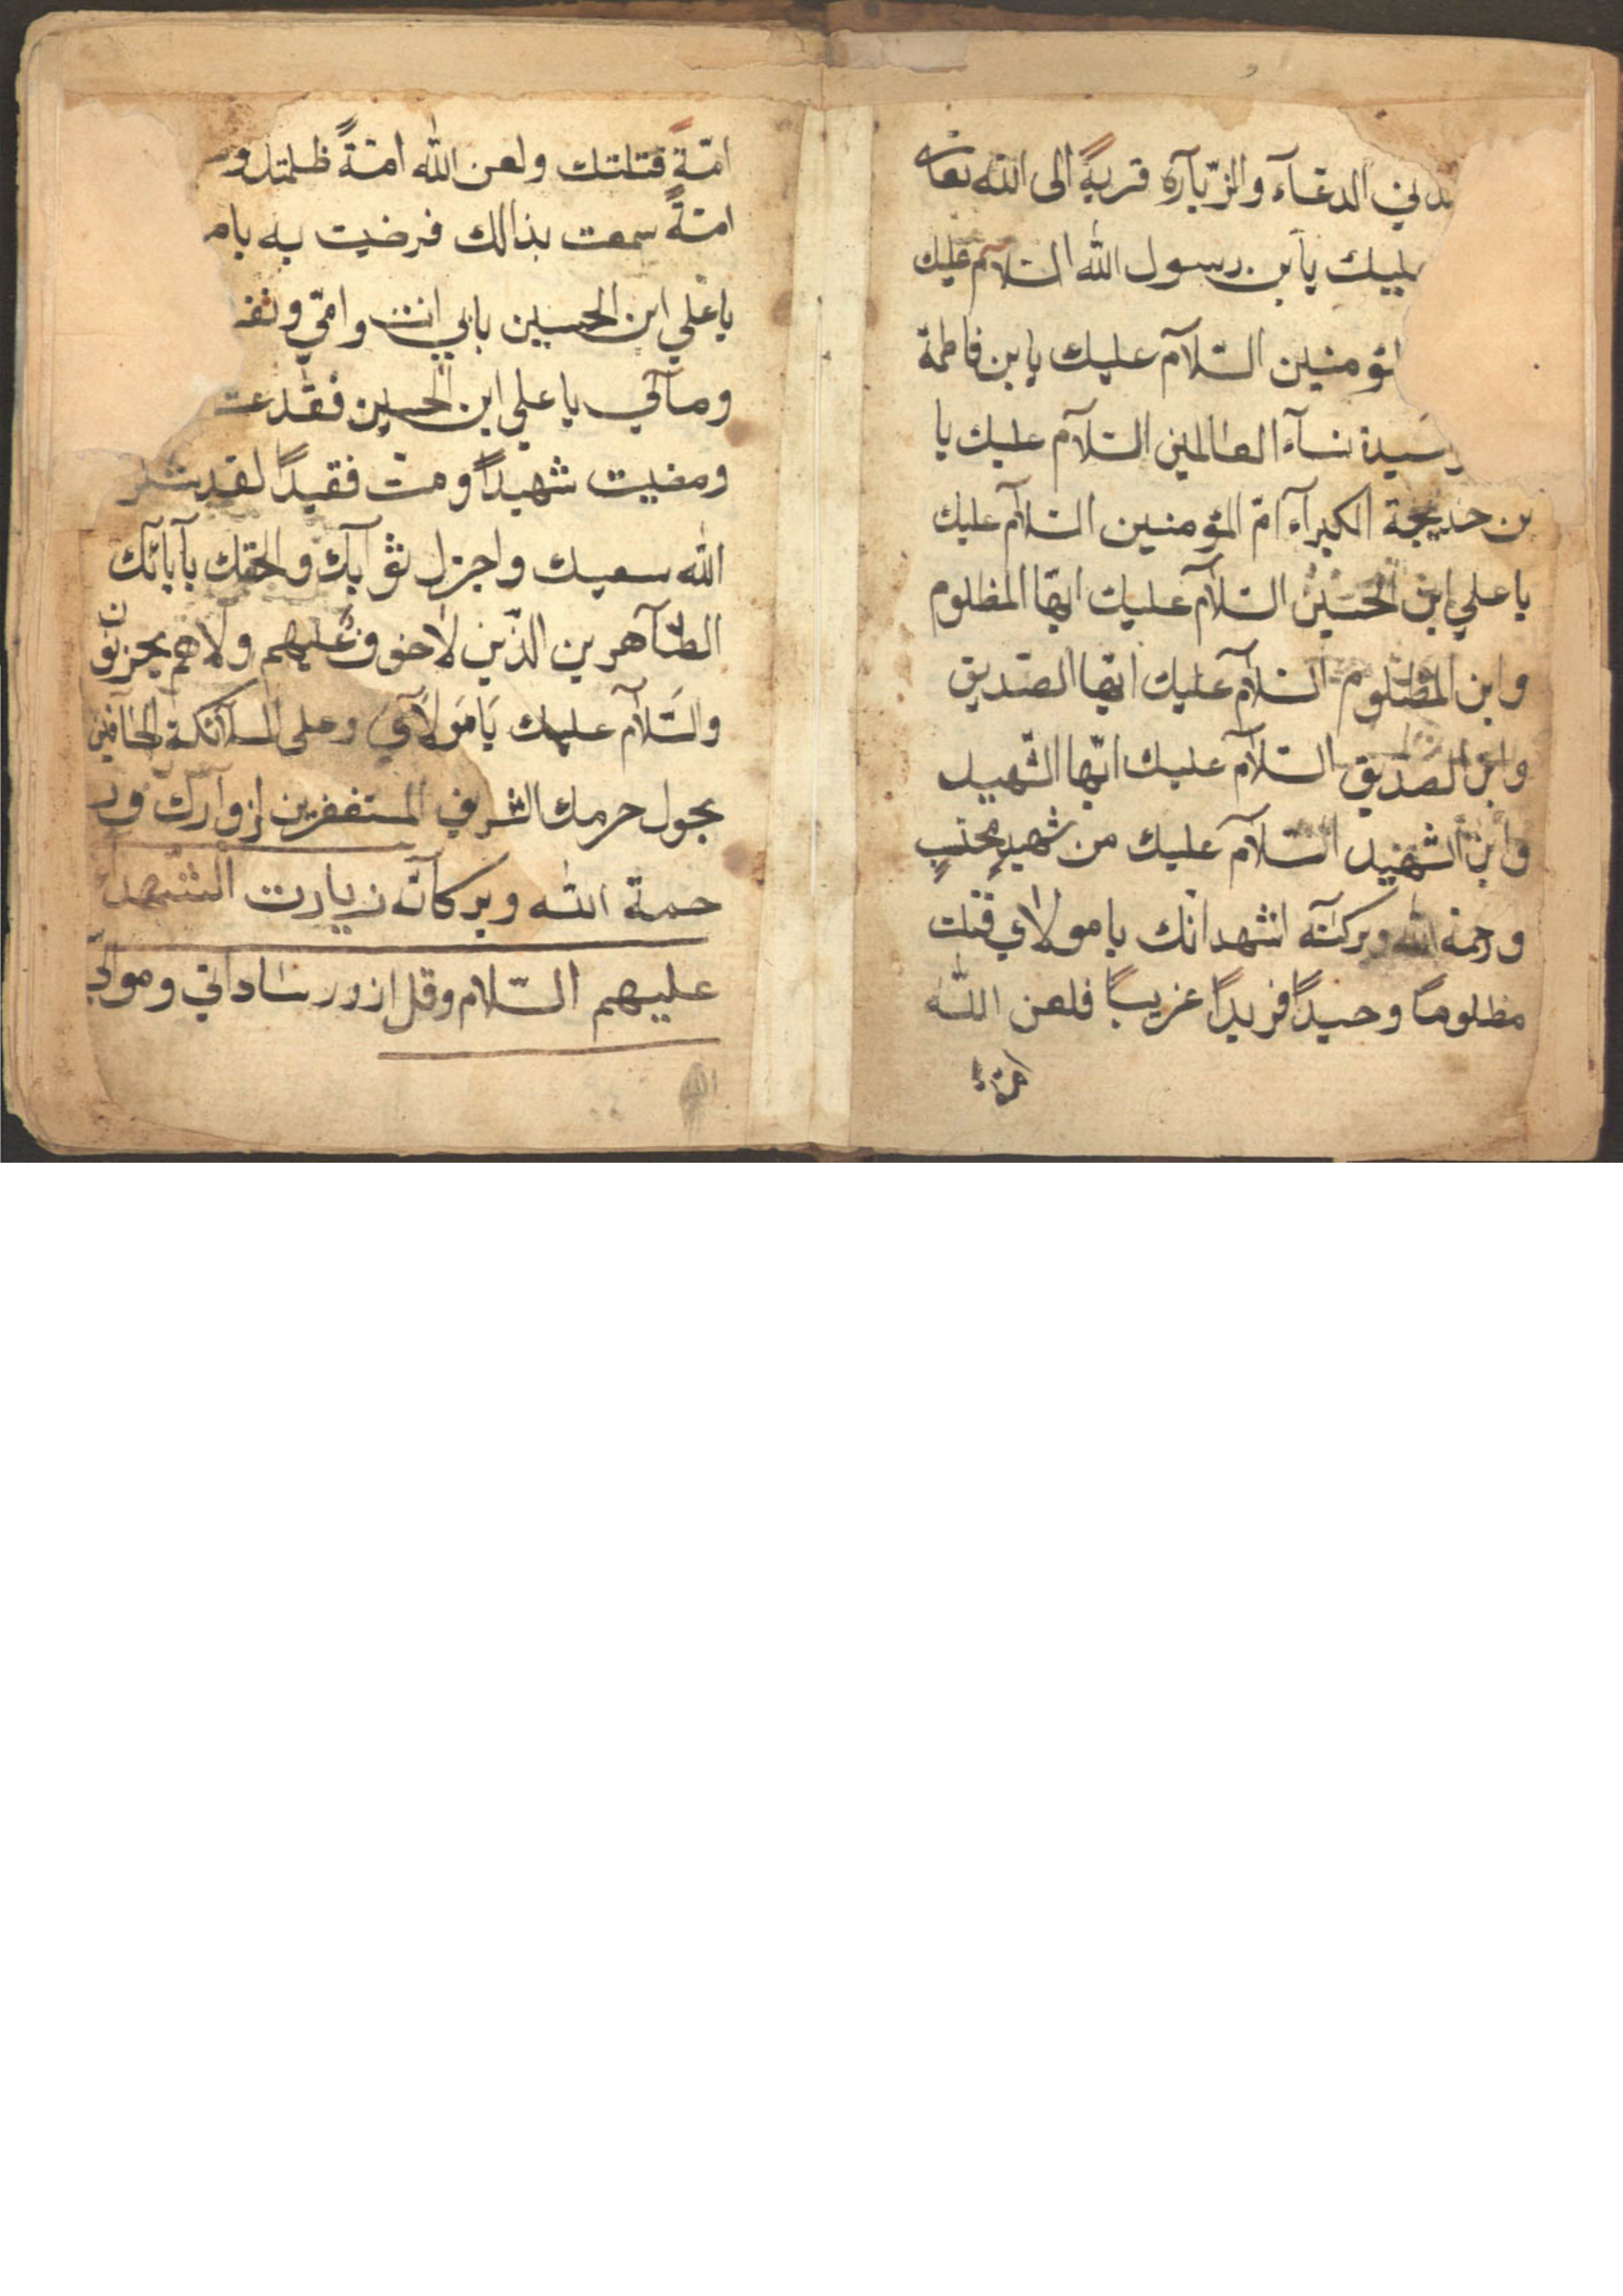 في الدعآء والزّيآرة قربةً الى الله تعالى
عليك يابن رسول الله السّلآم عليك
السّلآم عليك يابن فاطمة
سيدة نسآء العالمين السّلآم عليك يا
بن خديجة الكبرآء امّ المؤمنين السّلآم عليك
يا علي ابن الحسين السّلآم عليك ايّها المظلوم
وابن المظلوم السّلآم عليك ايّها الصّديق
وابن الصّديق السّلآم عليك ايّها الشّهيد
وابن الشّهيد السّلآم عليك من شهيدٍ محتسبٍ
ورحمة الله وبركاته اشهد انّك يا مولاي قتلت
مظلوماً وحيداً فريداً غريباً فلعن الله
امّة
امّةً قتلتك ولعن الله امّةً ظلمتك و
امّةً سمعت بذالك فرضيت به
يا علي ابن الحسين بابي انت وامّي و
ومآلي يا علي ابن الحسين فقد
ومضيت شهيداً ومتّ فقيداً لقد شكر
الله سعيك واجزل ثوآبك والحقك بآبائك
الطّآهرين الذّين لا خوف عليهم ولا هم يحزنون
والسّلآم عليك يا مولآي وعلى الملآئكة الحآفين
بحول حرمك الشريف المستغفرين لزوآرك ور
حمة الله وبركاته زيارت الشّهدا
عليهم السّلام وقل ازور ساداتي وموالي